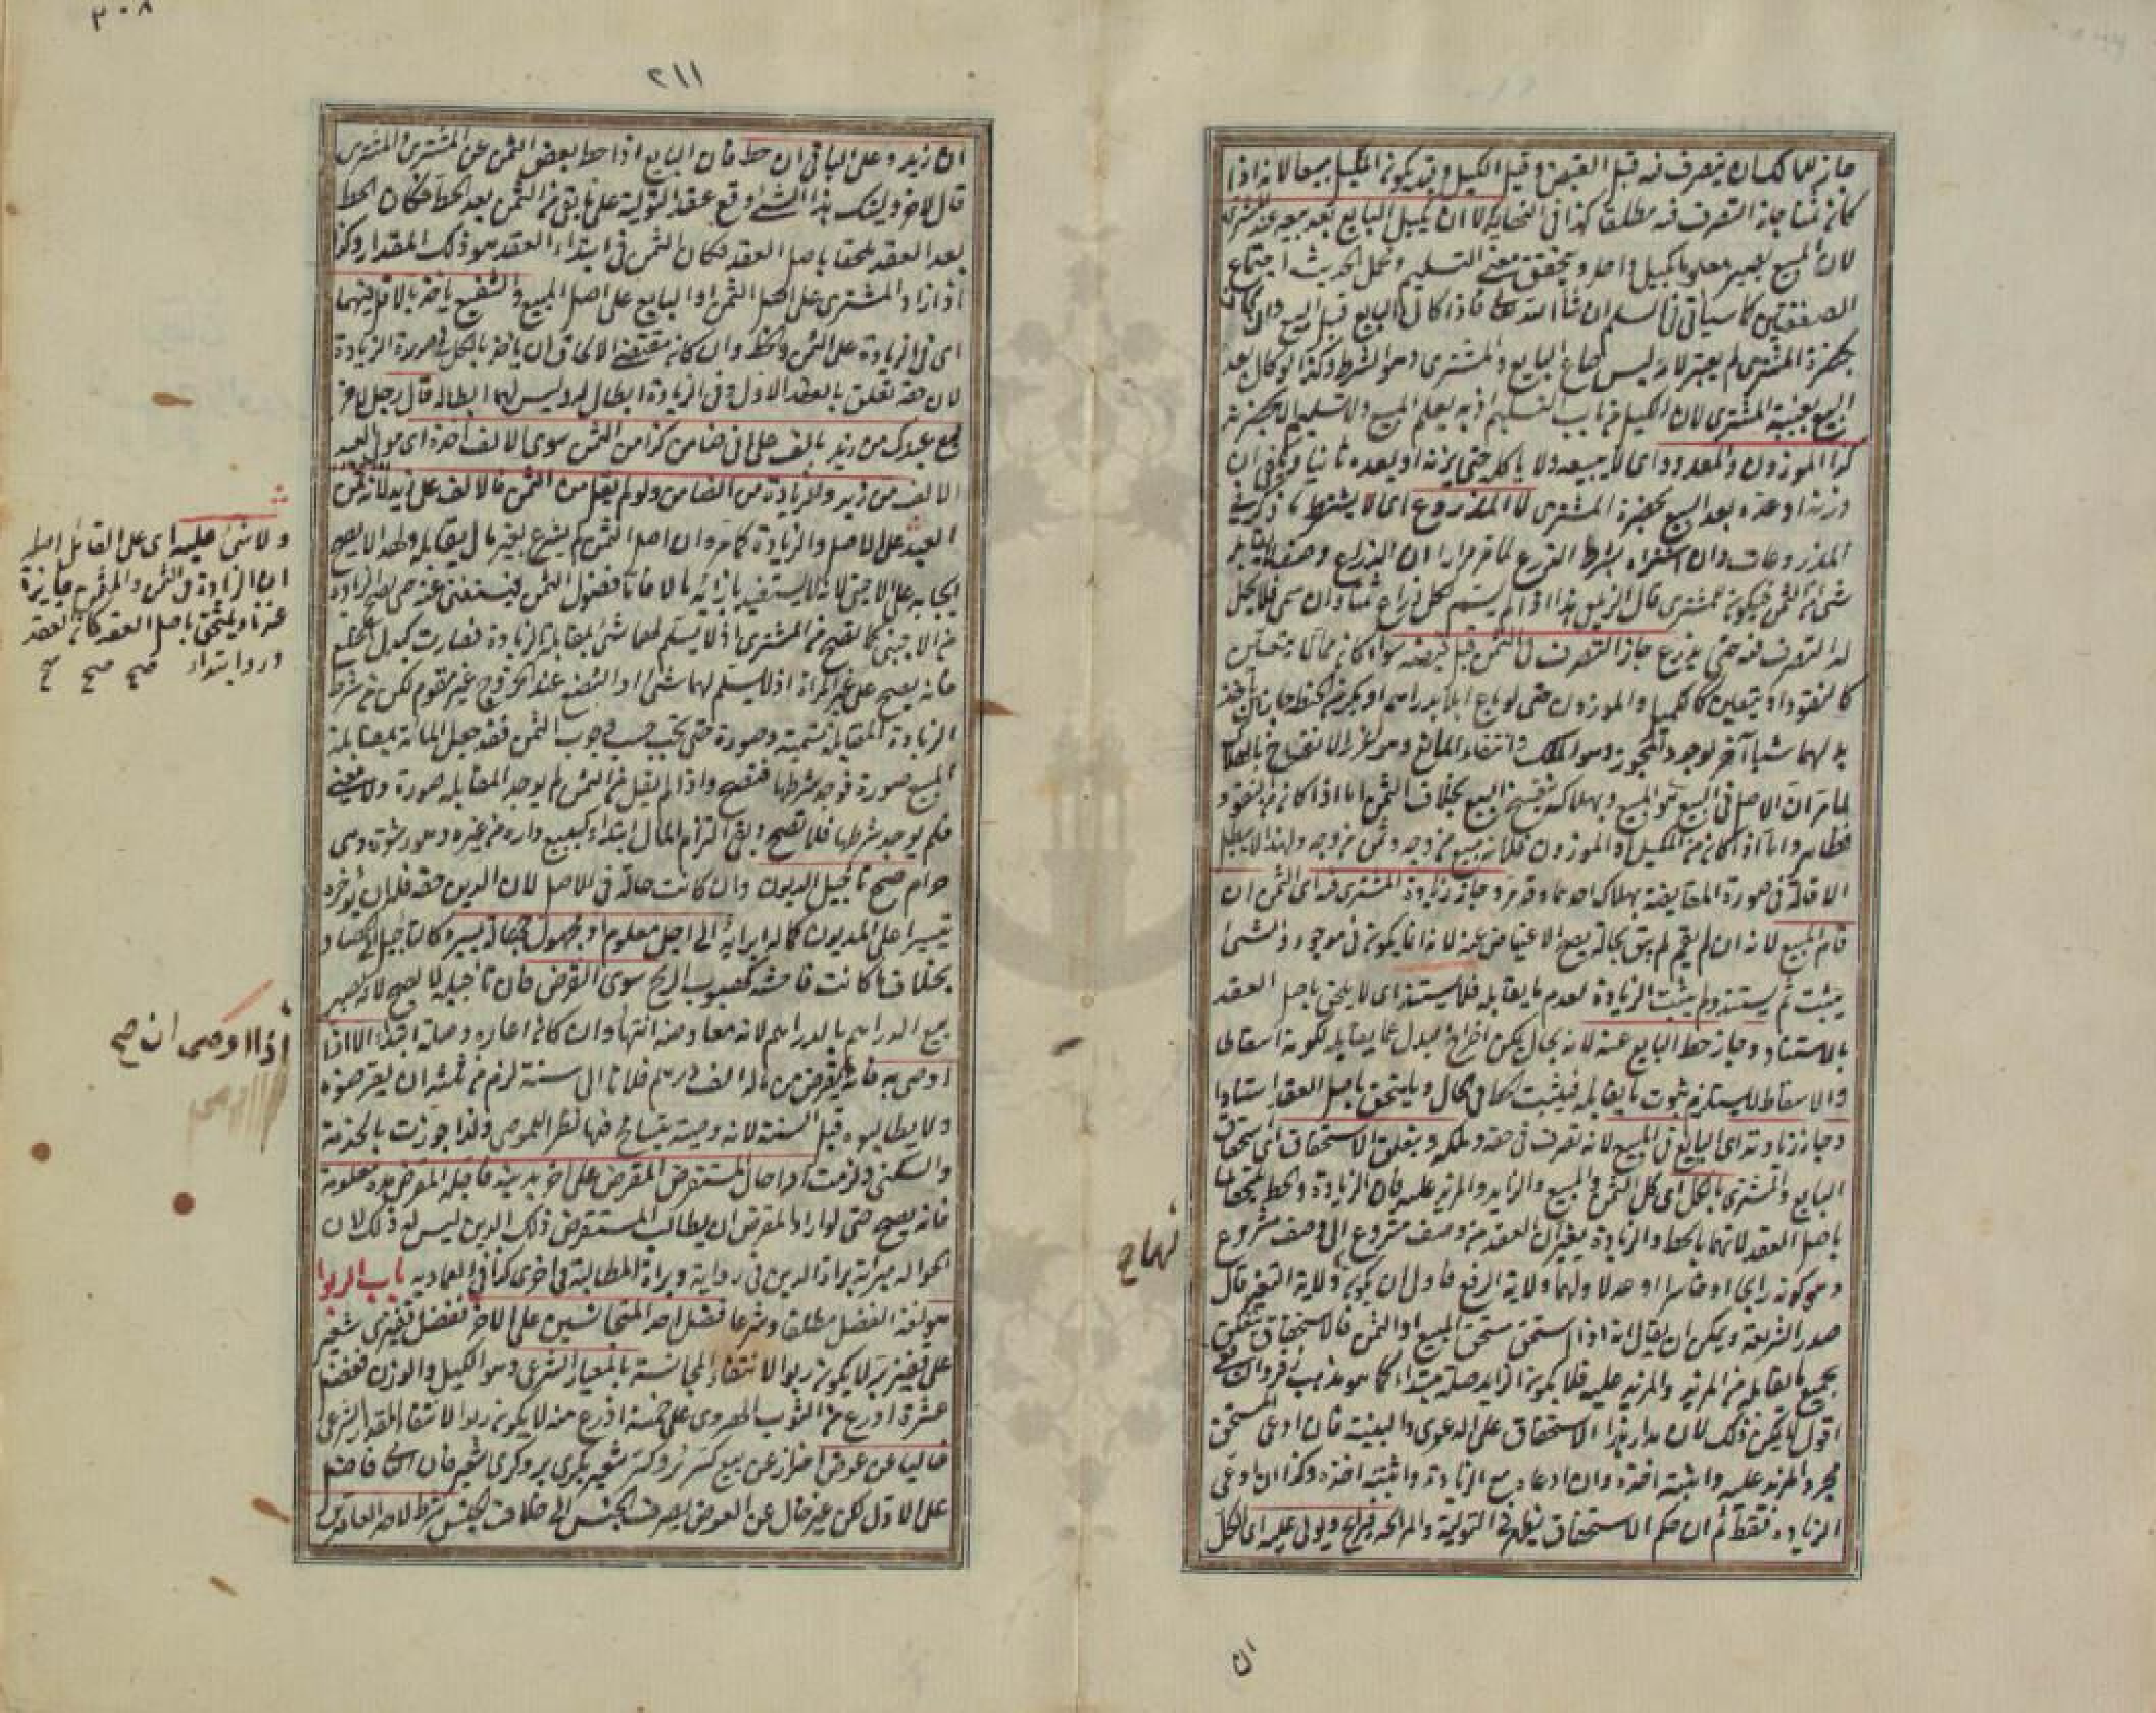 جاز للمالك ان يتصرف فيه قبل القبض وقبل الكيل وقيد بكونه المكيل مبيعا لانه اذا
كان ثمنا جاز التصرف فيه مطلقا كذا في النهاية لا ان كيل البايع بعد بيعه عند المشترى
لان المبيع يصير معلوما بكيل واحد ويتحقق معنى التسليم ومحل الحديث اجتماع
الصفقتين كما سيأتي في السلم ان شاء الله تعالى فاذا كال البايع قبل البيع وان كان
بحضرة المشترى لم يعتبر لانه ليس صاع البايع والمشترى وهو الشرط وكذا لو كال بعد
البيع بغيبة المشترى لان الكيل من باب التسليم اذ به يعلم المبيع ولا تسليم الا بحضرته
كذا الموزون والمعدود اى لا يبيعه ولا ياكله حتى يزنه او يعده ثانيا ويكفى ان
وزنه او عده بعد البيع بحضرة المشترى لا المذروع اى لا يشترط ما ذكر في
المذروعات وان اشتراه بشرط الذرع لما مر مرارا ان الذراع وصف
شئ من الثمن فيكون للمشترى قال الزيلعى هذا اذا لم يسم لكل ذراع ثمنا وان سمى فلا يحل
له التصرف فيه حتى يذرع جاز التصرف في الثمن قبل قبضه سواء كان مما لا يتعين
كالنقود او يتعين كالمكيل والموزون حتى لو باع ابلا بدراهم او بكر من الحنطة جاز ان ياخذ
بدلهما شيئا آخر لوجود المجوز وهو الملك وانتفاء المانع وهو غرر الانفساخ بالهلاك
لما مر ان الاصل في البيع هو المبيع وبهلاكه ينفسخ البيع بخلاف الثمن اما اذا كان من النقود
فظاهر واما اذا كان من المكيل او الموزون فلانه مبيع من وجه وثمن من وجه ولهذا لا يبطل
الاقالة في صورة المقايضة بهلاك احدهما وقد مر وجاز زيادة المشترى فيه اى الثمن ان
قام المبيع لانه ان لم يقم لم يبق بحالة يصح الاعتياض عنه لانه انما يكون في موجود والشئ
يثبت ثم يستند ولم يثبت الزيادة لعدم ما يقابله فلا يستند اى لا يلتحق باصل العقد
بالاستناد وجاز حط البايع عنه لانه بحال يمكن اخراج البدل عما يقابله لكونه اسقاطا
والاسقاط لا يستلزم ثبوت ما يقابله فيثبت الحط في الحال ويلتحق باصل العقد استنادا
وجاز زيادته اى البايع في المبيع لانه تصرف في حقه وملكه ويتعلق الاستحقاق اى استحقاق
البايع والمشترى بالكل اى كل الثمن والمبيع والزايد والمزيد عليه فان الزيادة والحط يلتحقان
باصل العقد لانهما بالحط والزيادة يغيران العقد من وصف مشروع الى وصف مشروع
وهو كونه رابحا او خاسرا او عدلا ولهما ولاية الرفع فاولى ان يكون ولاية التغير قال
صدر الشريعة ويمكن ان يقال انه اذا استحق مستحق المبيع او الثمن فالاستحقاق يتعلق
بجميع ما يقابله من المزيد والمزيد عليه فلا يكون الزايد صلة مبتدأة كما هو مذهب زفر والشافعى
اقول لا يمكن ذلك لان مدار هذا الاستحقاق على الدعوى والبينة فان ادعى المستحق
مجرد المزيد عليه واثبته اخذه وان ادعاه مع الزيادة واثبته اخذه وكذا ان ادعى
الزيادة فقط ثم ان حكم الاستحقاق يظهر في التولية والمرابحة فيرابح ويولى عليه اى الكل
نهماح
ان
٢١١
٣٠٨
ان زيد وعلى الباقي ان حط فان البايع اذا حط بعض الثمن عن المشترى والمشترى
قال لاخر وليتك هذا الشئ وقع عقد التولية على ما بقي من الثمن بعد الحط فكان الحط
بعد العقد ملحقا باصل العقد فكان الثمن في ابتداء العقد هو ذلك المقدار وكذا
اذا زاد المشترى على اصل الثمن او البايع على اصل المبيع والشفيع ياخذ بالاقل فيهما
اى في الزيادة على الثمن والحط وان كان مقتضى الالحاق ان ياخذ بالكل في صورة الزيادة
لان حقه تعلق بالعقد الاول وفي الزيادة ابطال له وليس لهما ابطاله قال رجل لاخر
بع عبدك من زيد بالف على اني ضامن كذا من الثمن سوى الالف اخذه اى مولى العبد
الالف من زيد والزيادة من الضامن ولو لم يقل من الثمن فالالف على زيد لانه ثمن
العبد على الاصل والزيادة كما مر وان اصل الثمن لم يشرع بغير مال يقابله ولهذا لا يصح
ايجابه على الاجنبي لانه لا يستفيد بازائه مالا فاما فضول الثمن فيستغنى عنه حتى يصح الزيادة
من الاجنبي كما تصح من المشترى اذ لا يسلم لهما شئ بمقابلة الزيادة فصارت كبدل الخلع
فانه يصح على غير المراة اذ لا يسلم لهما شئ اذ البضع عند الخروج غير متقوم لكن من شرط
الزيادة المقابلة تسمية وصورة حتى تجب حسب وجوب الثمن فقد جعل المائة بمقابلة
المبيع صورة فوجد شرطها فتصح واذا لم يقل من الثمن لم يوجد المقابلة صورة ولا معنى
فلم يوجد شرطها فلا تصح وبقى التزام المال ابتداء كبيع داره من غيره وهو رشوة وهى
حرام صح تأجيل الديون وان كانت حالة في الاصل لان الدين حقه فله ان يؤخره
تيسيرا على المديون كما له ابراؤه الى اجل معلوم او مجهول جهالة يسيرة كالتاجيل الى الحصاد
بخلاف ما كانت فاحشة كهبوب الريح سوى القرض فان تأجيله لا يصح لانه يصير
بيع الدراهم بالدراهم لانه معاوضة انتهاء وان كان اعارة وصلة ابتداء الا اذا
اوصى به فانه يقرض من ماله الف درهم فلانا الى سنة لزم من ثلثه ان يقرضوه
ولا يطالبوه قبل السنة لانه وصية يتسامح فيها نظرا للموصى ولذا جوزت بالخدمة
والسكنى ولزمت او احال المستقرض المقرض على اخر بدينه فاجله المقرض مدة معلومة
فانه يصح حتى لو اراد المقرض ان يطالب المستقرض ذلك الدين ليس له ذلك لان
الحوالة مبرئة براءة الدين في رواية وبراءة المطالبة في اخرى كذا في العمادية باب الربوا
هو لغة الفضل مطلقا وشرعا فضل احد المتجانسين على الاخر ففضل قفيزى شعير
على قفيز بر لا يكون ربوا لانتفاء المجانسة بالمعيار الشرعى وهو الكيل والوزن ففضل
عشرة اذرع من الثوب الهروى على خمسة اذرع منه لا يكون ربوا لانتفاء المقدار الشرعى
خاليا عن عوض احتراز عن بيع كر بر وكر شعير بكرى بر وكرى شعير فان الثانى فاضل
على الاول لكن غير خال عن العوض بصرف الجنس الى خلاف الجنس شرط لاحد العاقدين
ولا شئ عليه اى على القائل
ان الزيادة في الثمن والمثمن جايزة
عندنا ويلتحق باصل العقد كان العقد
ورد ابتداء صح صح صح
اذا اوصى ان صح